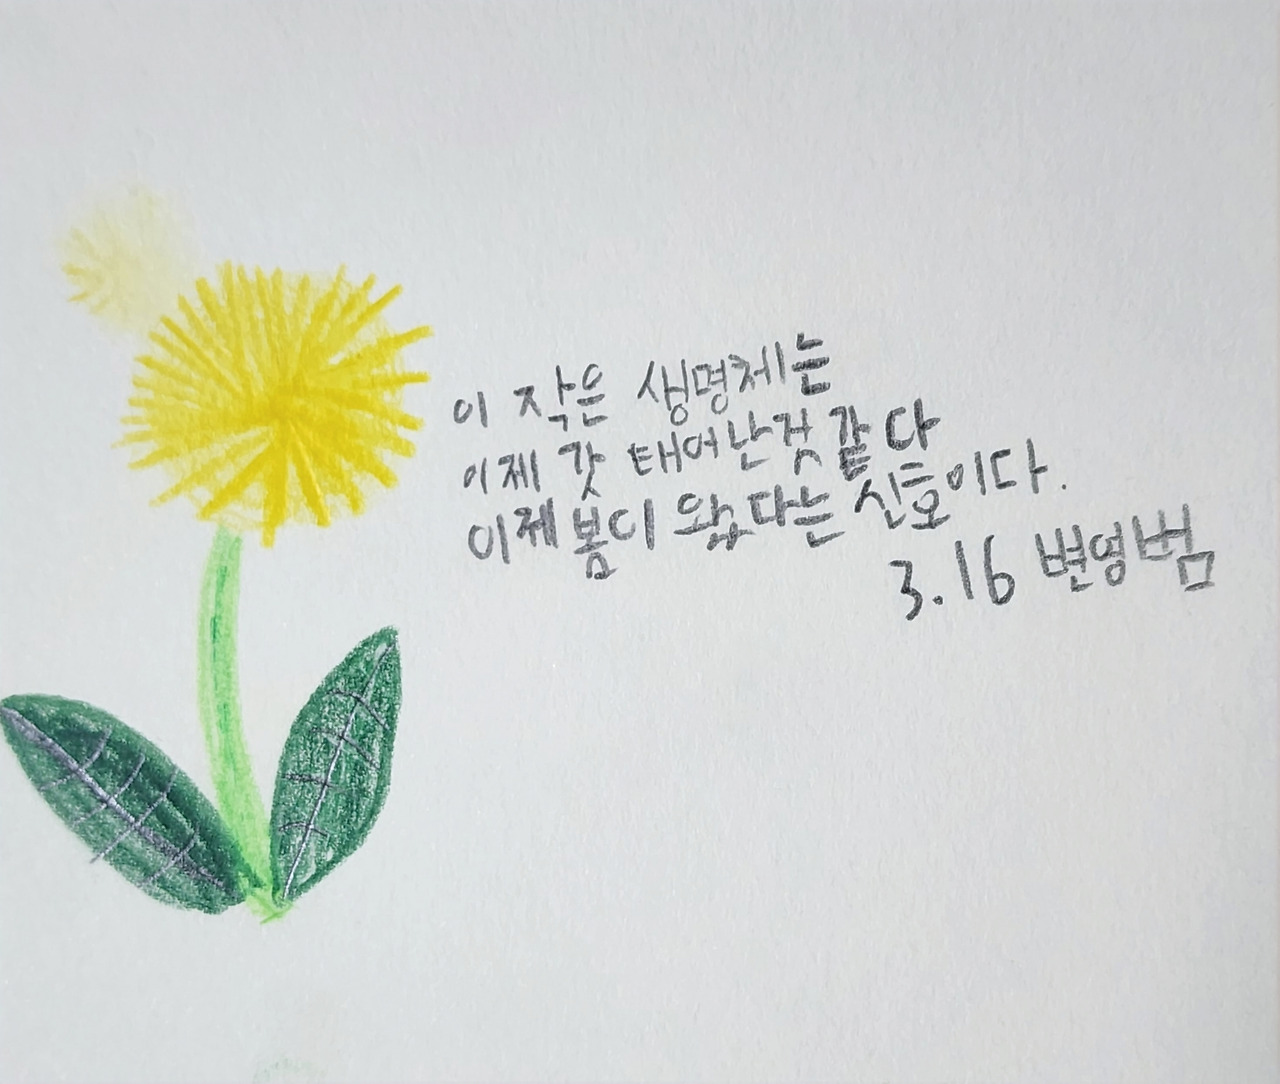 이 작은 생명체는
이제 갓 태어난것 같다
이제 봄이 왔다는 신호이다.
3.16 변영범